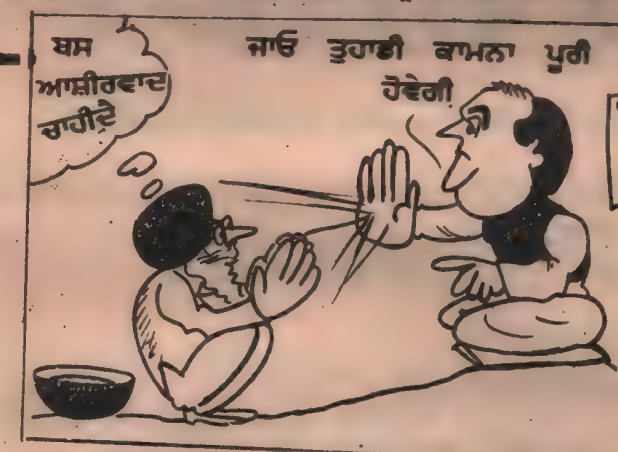 ਬਸ
ਆਸ਼ੀਰਵਾਦ
ਚਾਹੀਦੇ
ਜਾਓ ਤੁਹਾਡੀ ਕਾਮਨਾ ਪੂਰੀ
ਹੋਵੇਗੀ